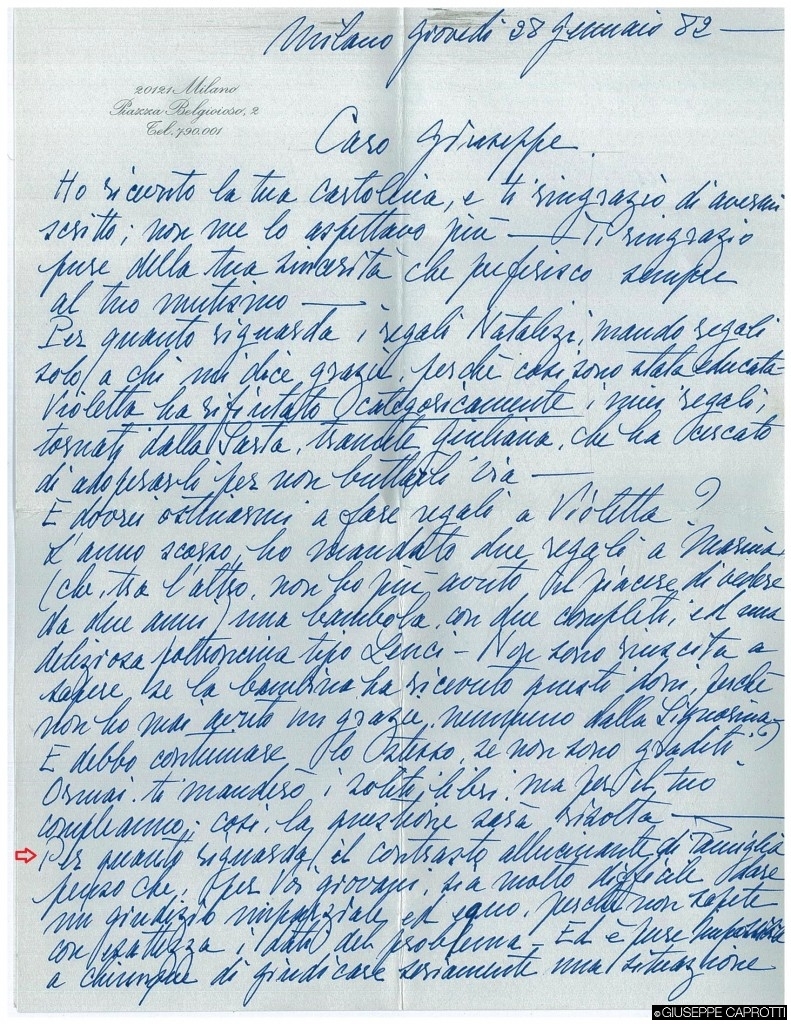 Milano giovedì 28 gennaio 82 —
20121 Milano
Piazza Belgioioso, 2
Tel. 790.001
Caro Giuseppe.
Ho ricevuto la tua cartolina, e ti ringrazio di avermi
scritto; non me lo aspettavo più — Ti ringrazio
pure della tua sincerità che preferisco sempre
al tuo mutismo —
Per quanto riguarda i regali Natalizi, mando regali
solo a chi mi dice grazie, perchè così sono stata educata
Violetta ha rifiutato categoricamente i miei regali,
tornati dalla Sarta, tramite Giuliana, che ha cercato
di adoperarli per non buttarli via —
E dovrei ostinarmi a fare regali a Violetta ?
L'anno scorso, ho mandato due regali a Marina
(che, tra l'altro, non ho più avuto il piacere di vedere
da due anni) una bambola, con due completi, ed una
deliziosa poltroncina tipo Lenci - Non sono riuscita a
sapere se la bambina ha ricevuto questi doni, perchè
non ho mai avuto un grazie, nemmeno dalla Signorina
E debbo continuare lo stesso, se non sono graditi ?
Ormai ti manderò i soliti libri, ma per il tuo
compleanno; così la questione sarà risolta —
Per quanto riguarda il contrasto allucinante di famiglia
penso che, per Voi giovani, sia molto difficile dare
un giudizio imparziale, ed equo, perchè non sapete
con esattezza i dati del problema - Ed è pure impossibile
a chiunque di giudicare seriamente una situazione
©GIUSEPPE CAPROTTI